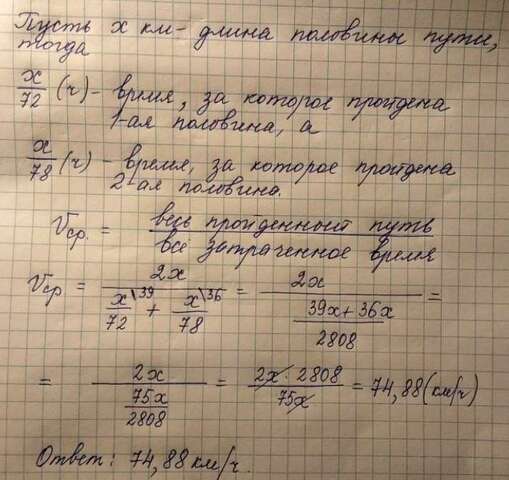 Пусть x км - длина половины пути,
тогда
x/72 (ч) - время, за которое пройдена
1-ая половина, а
x/78 (ч) - время, за которое пройдена
2-ая половина.
Vср. = весь пройденный путь / все затраченное время
Vср = 2x / (x\39/72 + x\36/78) = 2x / ((39x + 36x)/2808) =
= 2x / (75x/2808) = 2x · 2808 / 75x = 74,88 (км/ч)
Ответ: 74,88 км/ч.